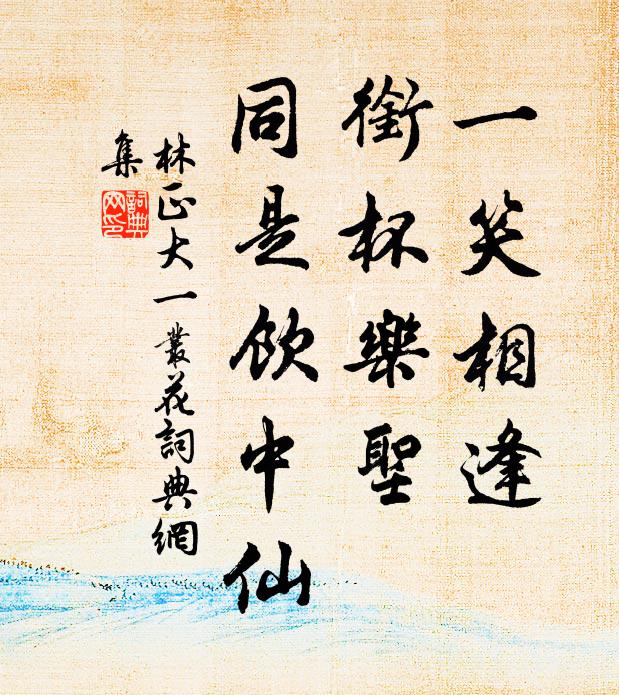 一笑相逢
銜杯樂聖
同是飲中仙
林正大一叢花詞典網
集
詞典網印